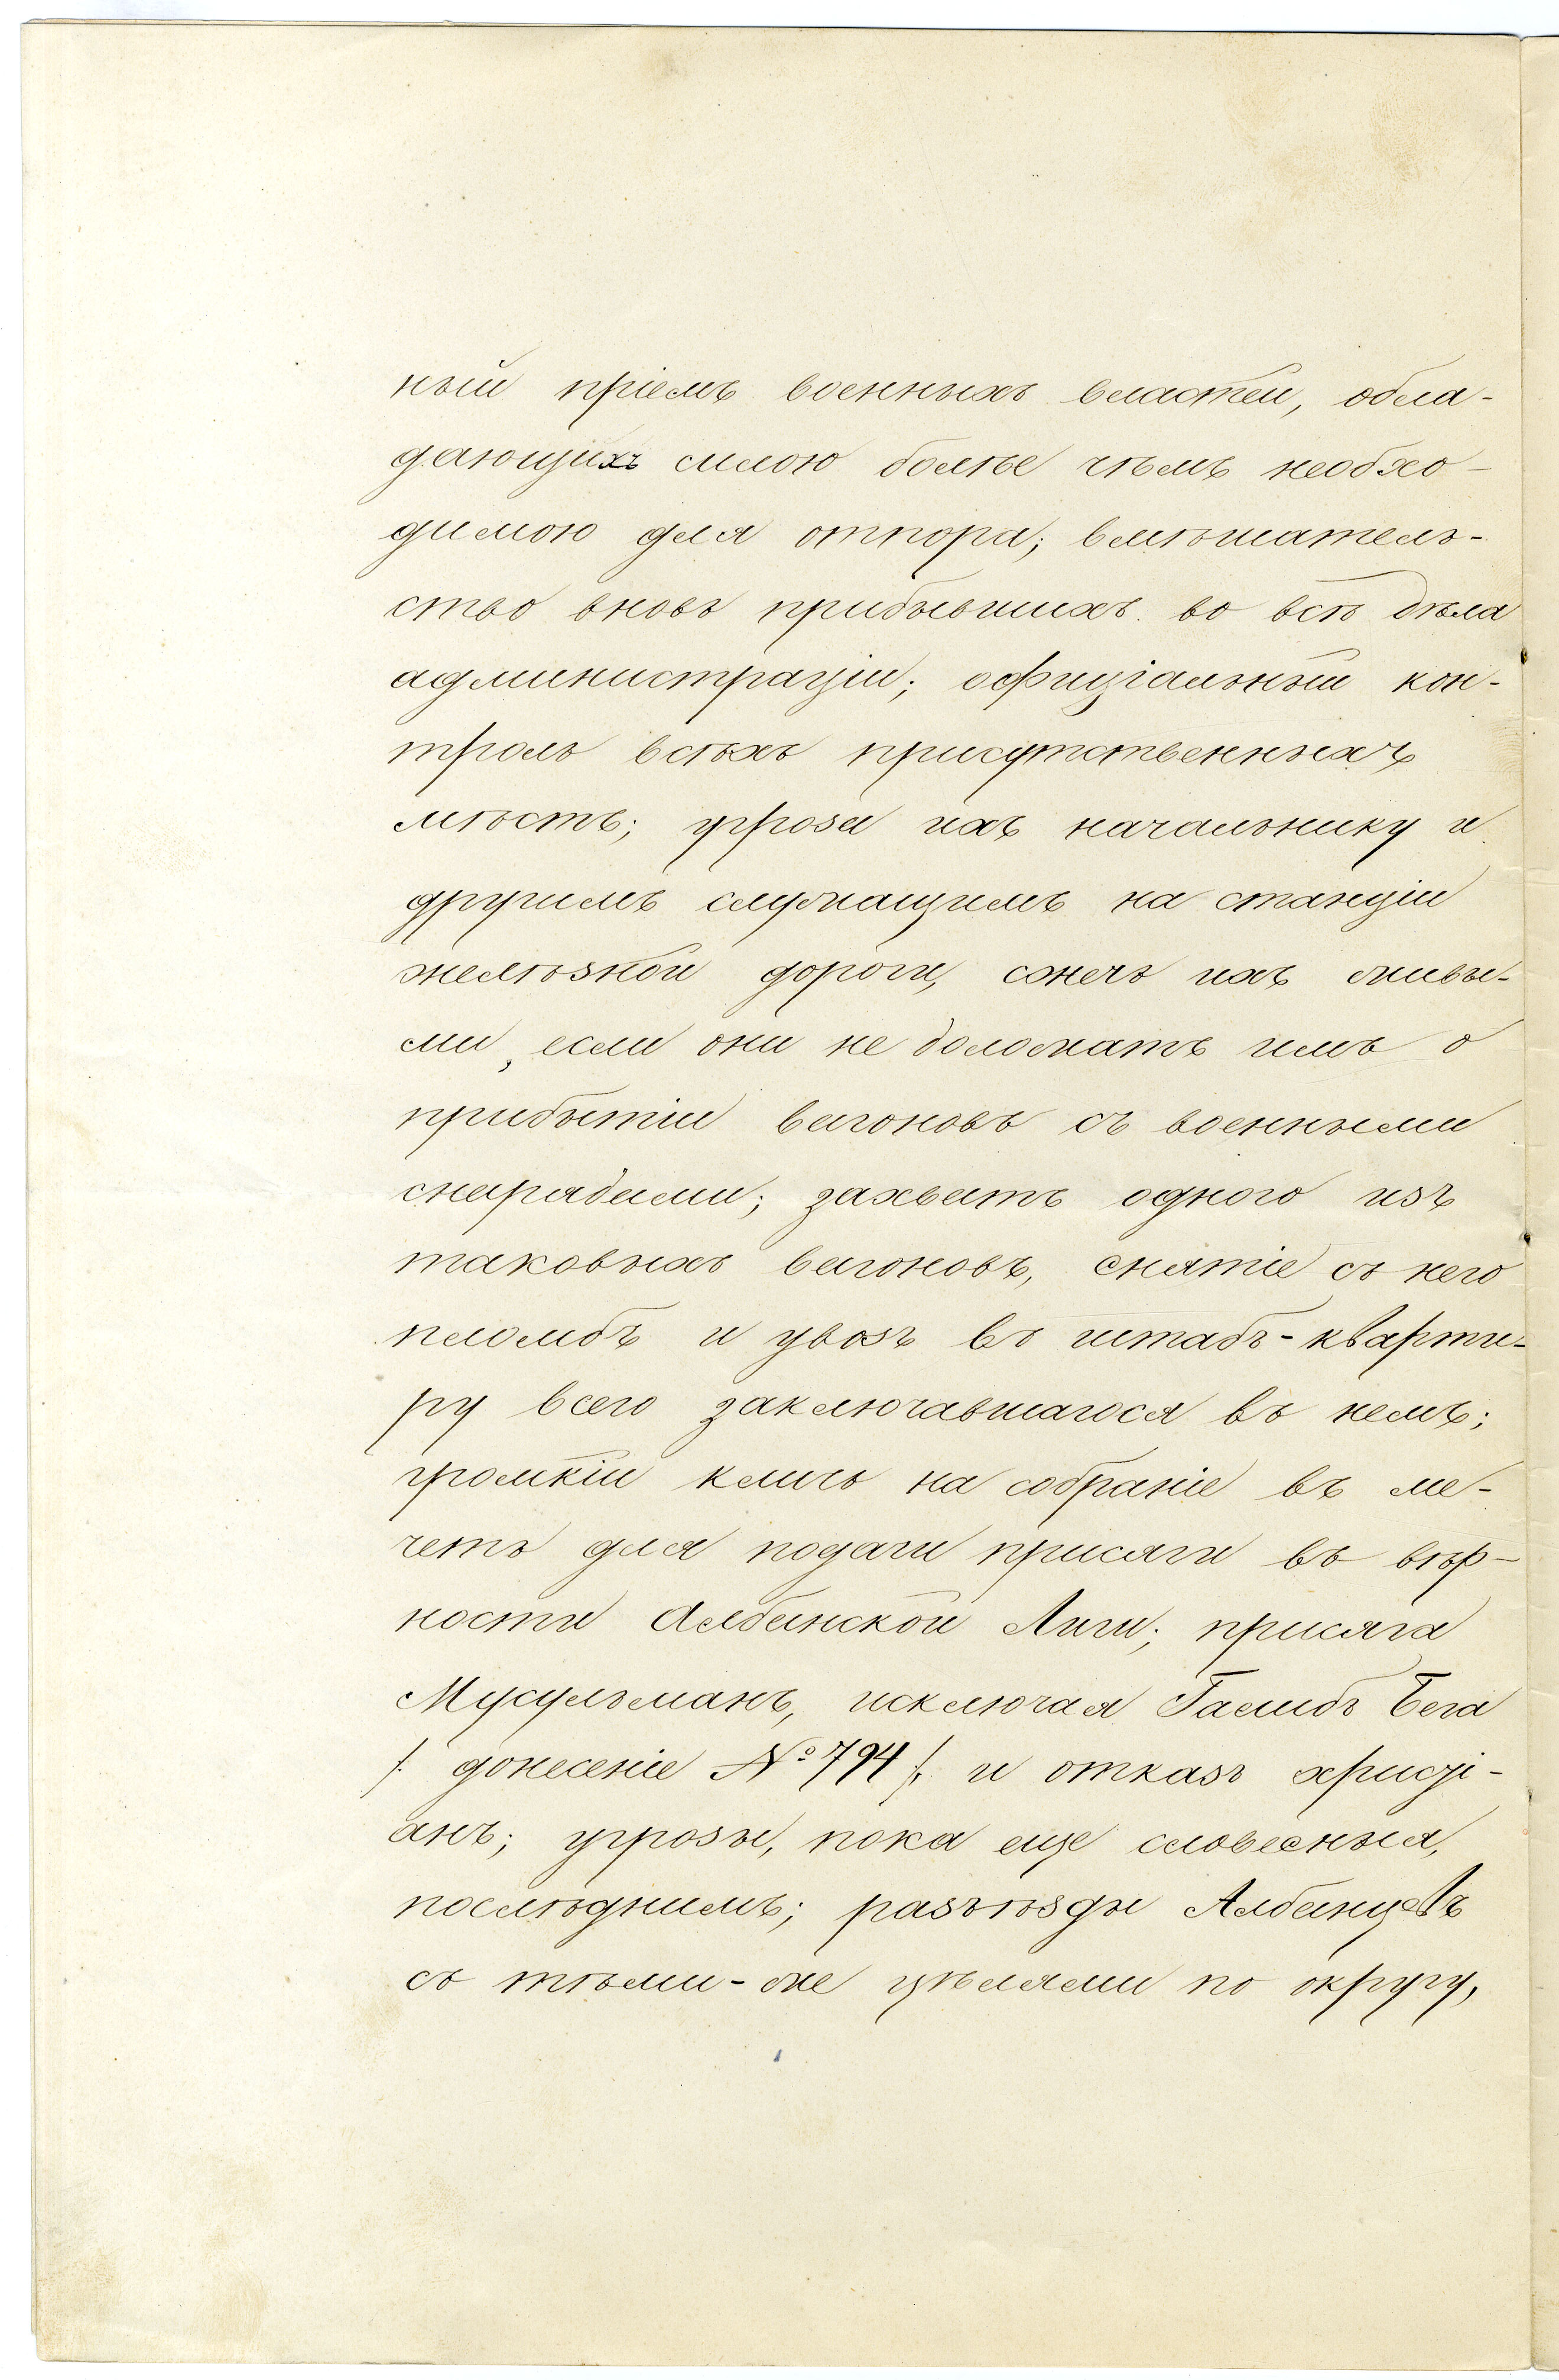 ный пріемъ военныхъ властей, обла-
дающихъ силою болѣе чѣмъ необхо-
димою для отпора; вмѣшатель-
ство вновь прибывшихъ во всѣ дѣла
администраціи; офиціальный кон-
троль всѣхъ присутственныхъ
мѣстъ; угроза ихъ начальнику и
другимъ служащимъ на станціи
желѣзной дороги, сжечь ихъ живы-
ми, если они не доложатъ имъ о
прибытіи вагоновъ съ военными
снарядами; захватъ одного изъ
таковыхъ вагоновъ, снятіе съ него
пломбъ и увозъ въ штабъ-кварти-
ру всего заключавшагося въ немъ;
громкій кличъ на собраніе въ ме-
четь для подачи присяги въ вѣр-
ности Албанской Лиги; присяга
Мусульманъ, исключая Галибъ Бега
/: донесеніе № 794 /, и отказъ христі-
анъ; угрозы, пока еще словесныя,
послѣднимъ; разъѣзды Албанцевъ
съ тѣми-же цѣлями по округу,